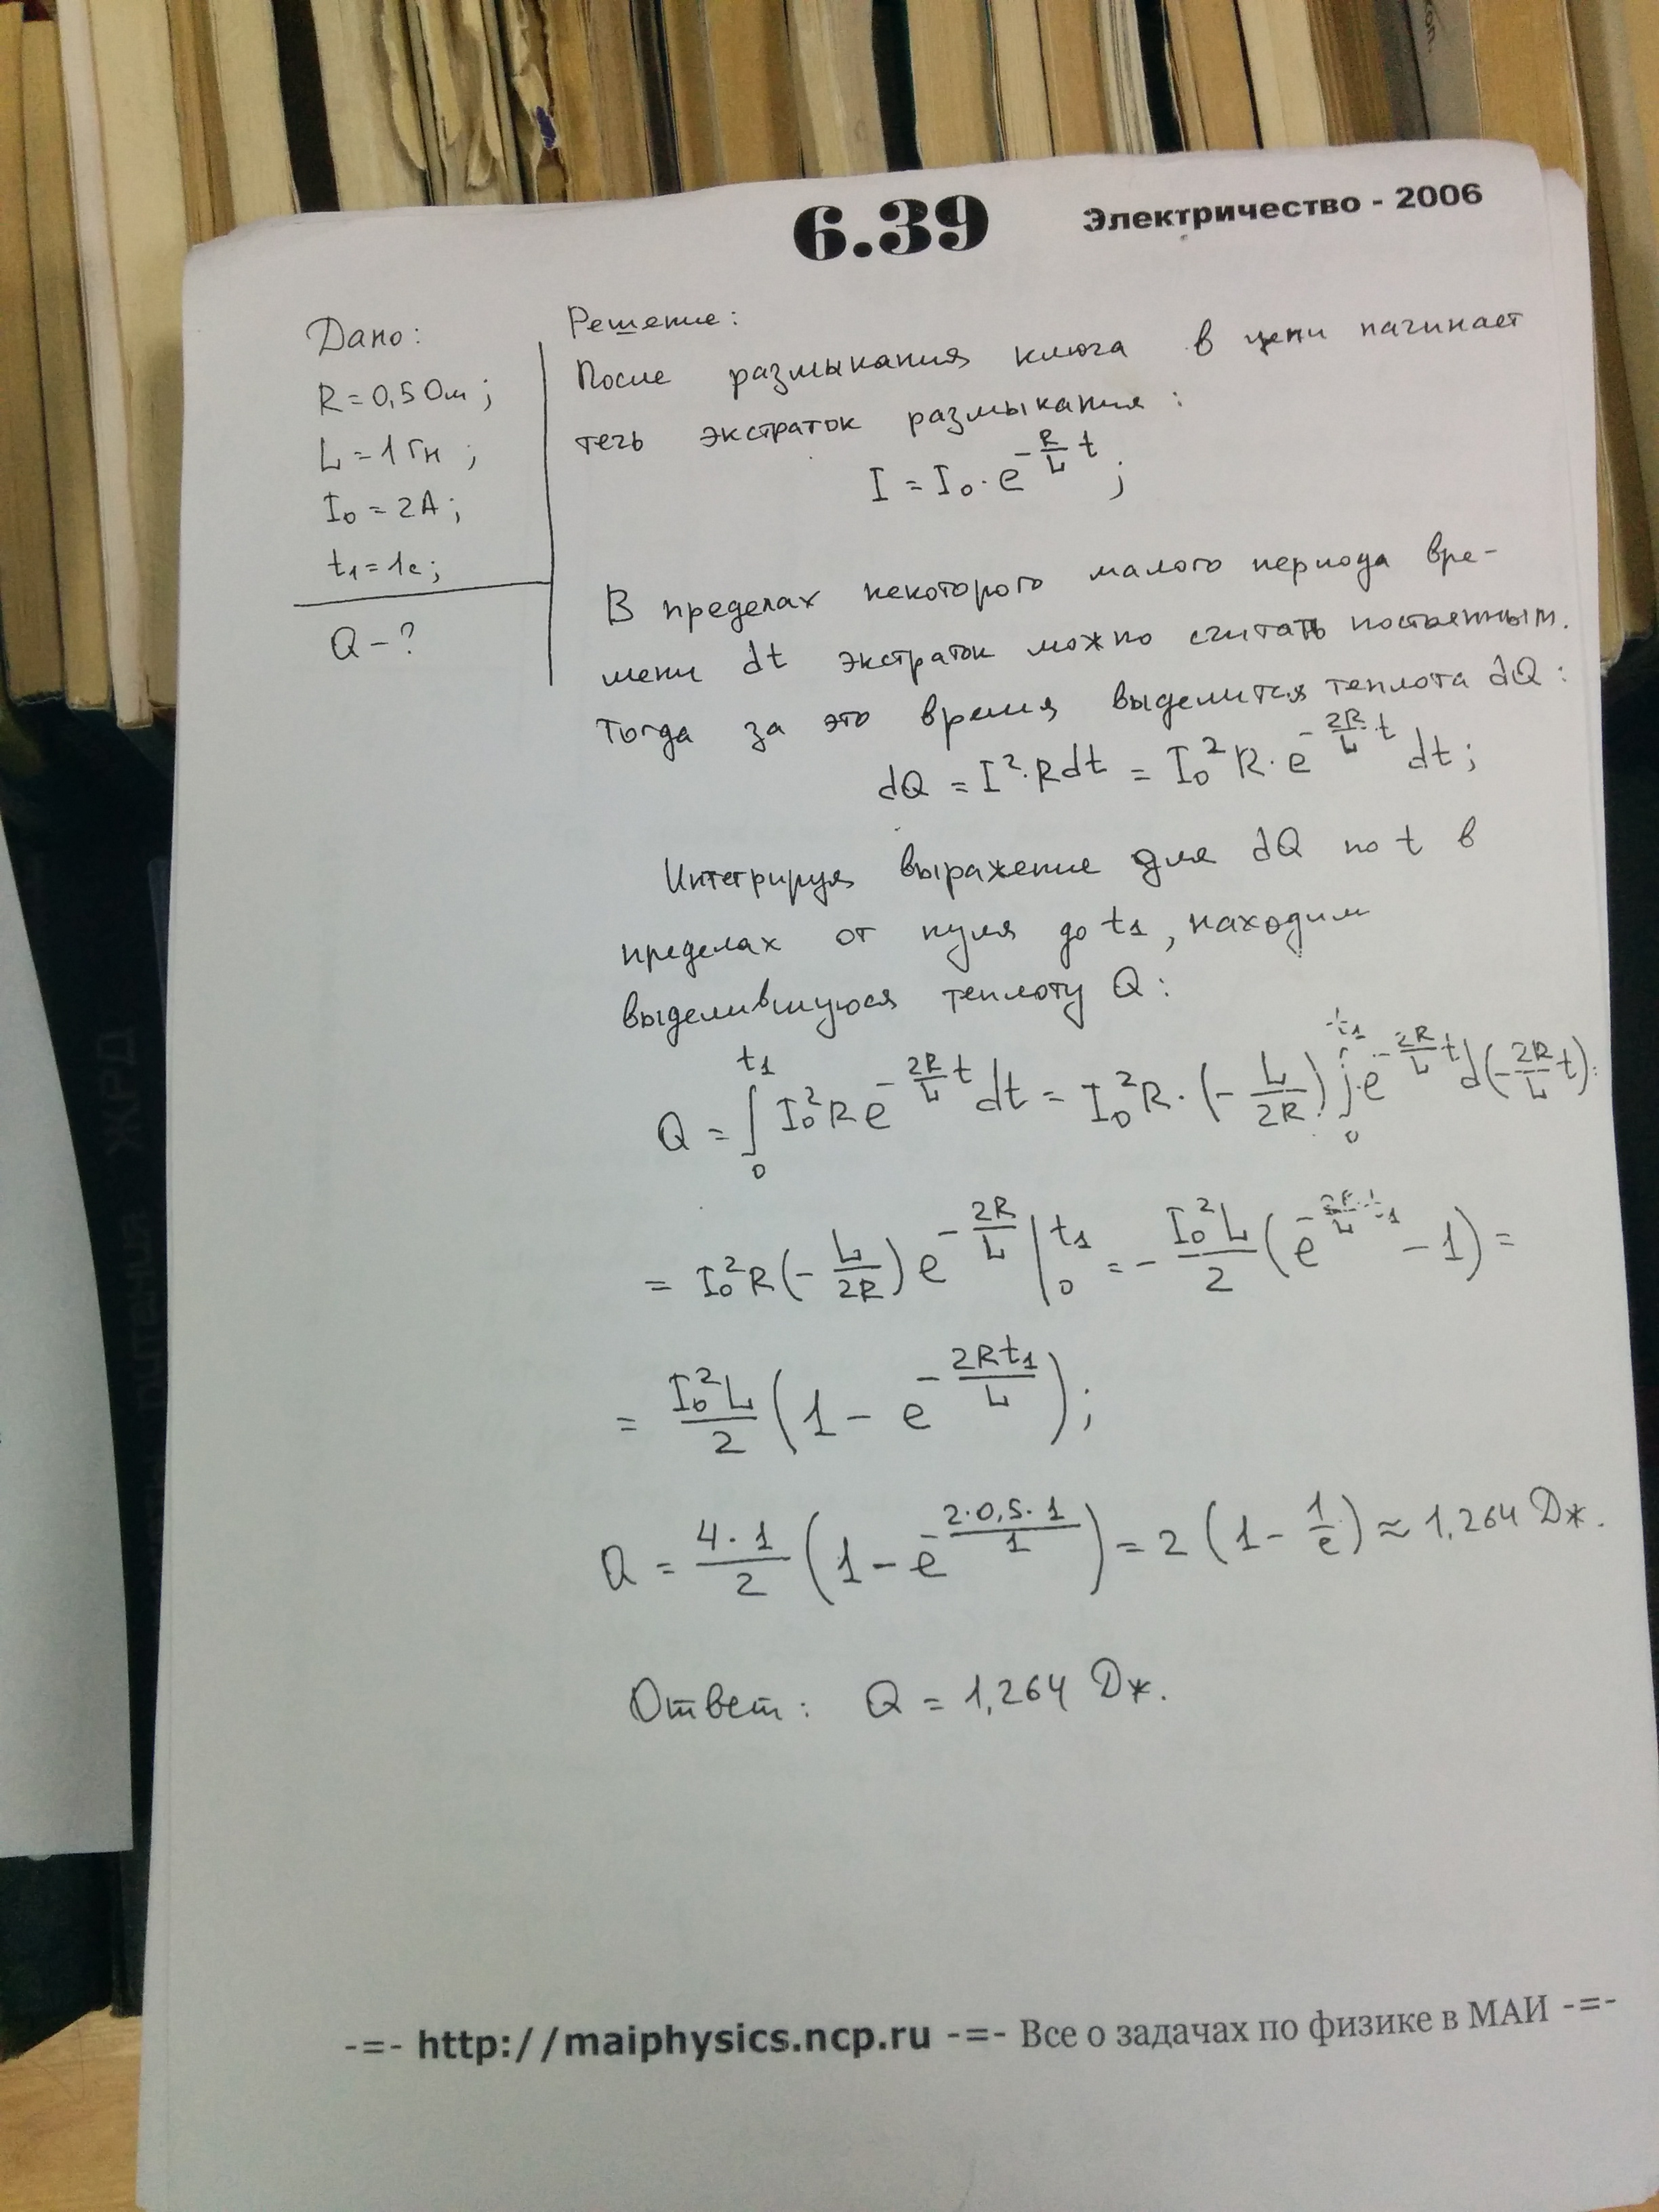 6.39 Электричество - 2006
Дано:
R = 0,5 Ом;
L = 1 Гн;
I₀ = 2А;
t₁ = 1с;
Q - ?
Решение:
После размыкания ключа в цепи начинает
течь экстраток размыкания:
I = I₀ · e^(-R/L t);
В пределах некоторого малого периода вре-
мени dt экстраток можно считать постоянным.
Тогда за это время выделится теплота dQ:
dQ = I² · Rdt = I₀² R · e^(-2R/L · t) dt;
Интегрируя выражение для dQ по t в
пределах от нуля до t₁, находим
выделившуюся теплоту Q:
Q = ∫₀^t₁ I₀² R e^(-2R/L t) dt = I₀² R · (- L/2R) ∫₀^t₁ e^(-2R/L t) d(-2R/L t) =
= I₀² R (- L/2R) e^(-2R/L) |₀^t₁ = - I₀² L/2 (e^(-2R/L · t₁) - 1) =
= I₀² L/2 (1 - e^(-2Rt₁/L));
Q = 4 · 1/2 (1 - e^(-2·0,5·1/1)) = 2 (1 - 1/e) ≈ 1,264 Дж.
Ответ: Q = 1,264 Дж.
-=- http://maiphysics.ncp.ru -=- Все о задачах по физике в МАИ -=-